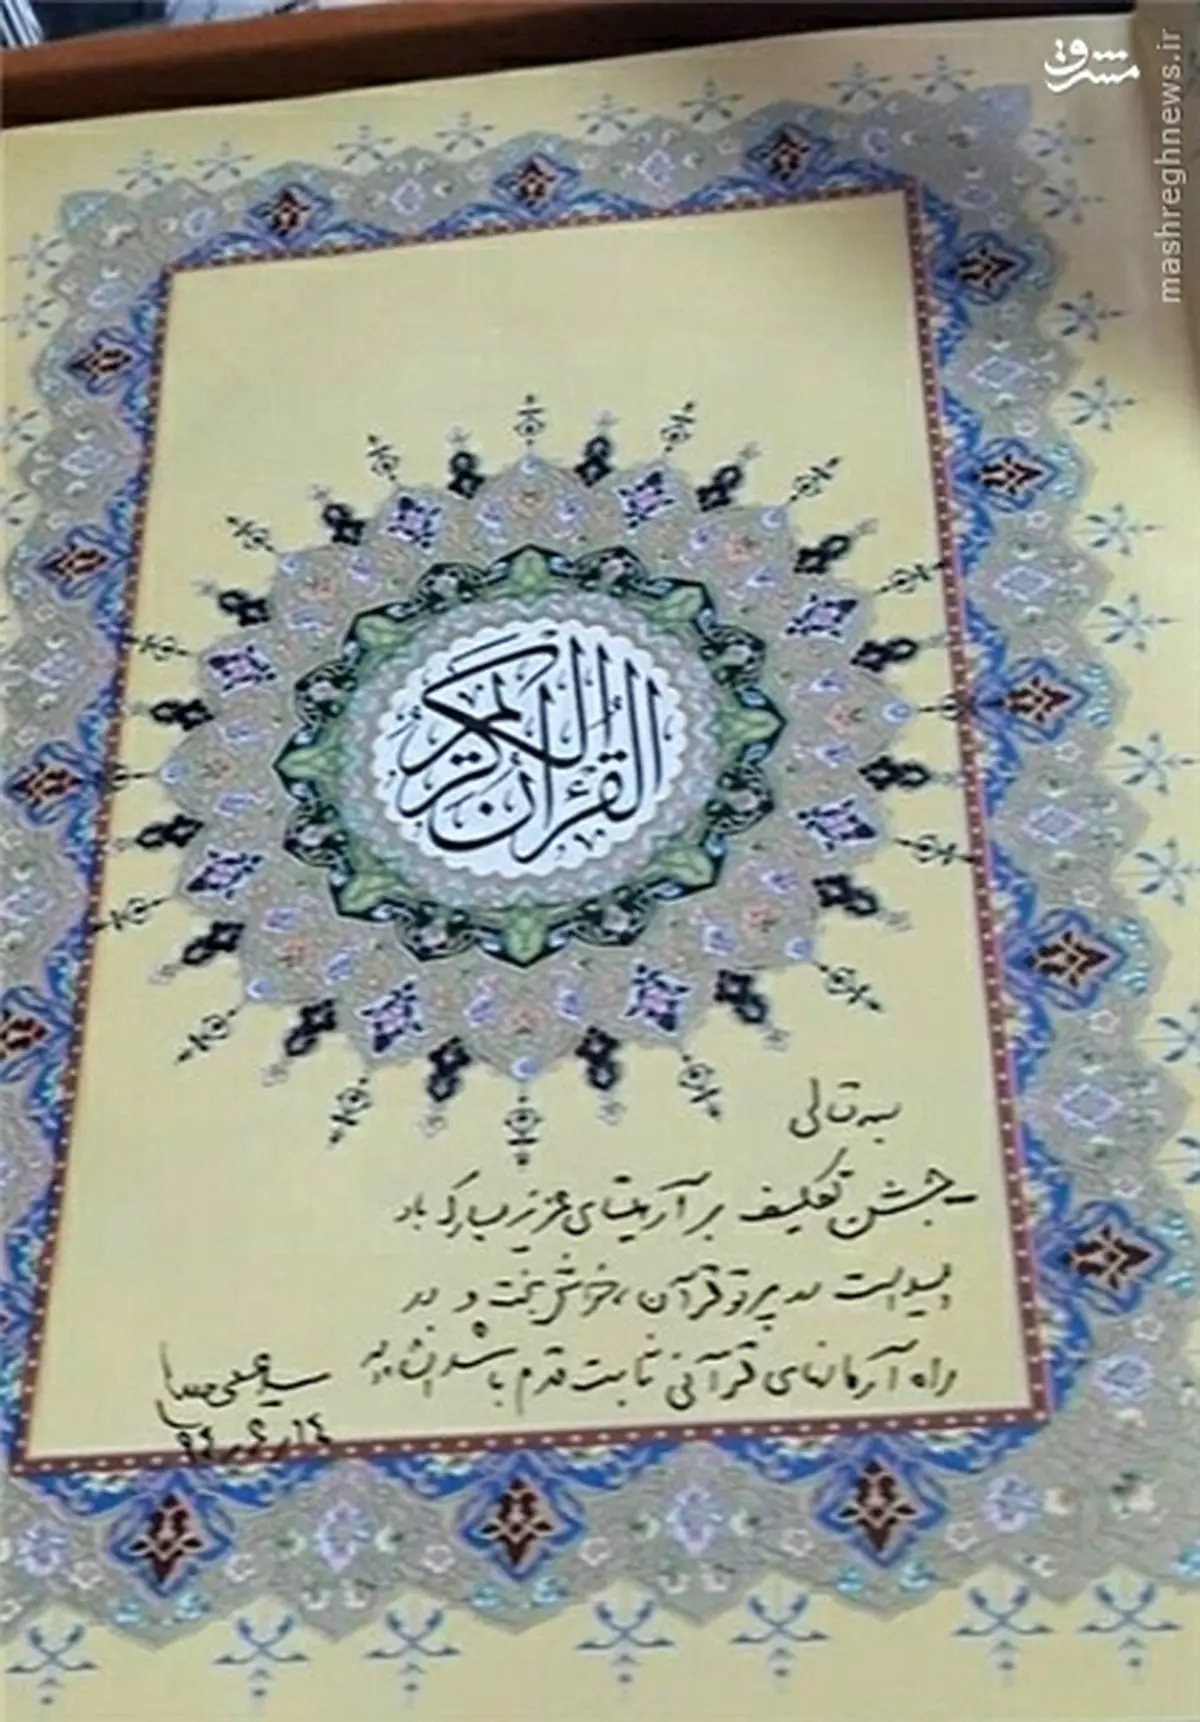 مشرق
mashreghnews.ir
القرآن الكريم
بسمه تعالی
جشن تکلیف بر آرمیتای عزیز مبارک باد
امید است در پرتو قرآن، خوش بخت و در
راه آرمانهای قرآنی ثابت قدم باشد
سید